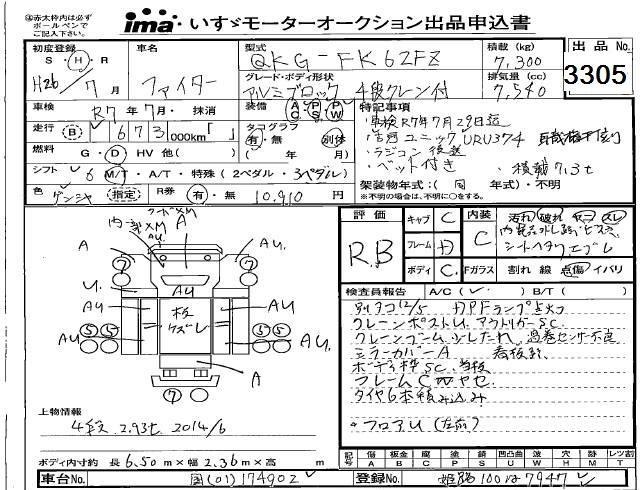 ※赤太枠内は必ず
ボールペンで
ご記入下さい。
ima いすゞモーターオークション出品申込書
初度登録
S・H・R
H26/7月
車名
ファイター
型式
QKG-FK62FZ
積載 (kg)
7,300
出品No.
3305
グレード・ボディ形状
アルミブロック 4段クレーン付
排気量 (cc)
7,540
車検 R7年7月・抹消
装備 A/C P/S P/W
特記事項
・車検R7年7月29日迄
・古河ユニック URU374
・ラジコン後送
・ベット付き
・積載7.3t
走行 B 673,000km「 」
タコグラフ
有・無 別体
燃料 G・D HV 他( )
シフト 6 M/T・A/T・特殊(2ペダル・3ペダル)
色 ゲンシャ 指定
R券 有・無 10,910円
架装物年式:( 同 年式)・不明
※架装物年式が不明の場合は、不明に○をする。
評価
RB
キャブ C
フレーム
ボディ C
内装 C
汚れ 破れ
シートヘタリ
Fガラス 割れ 線 点傷 イバリ
検査員報告 A/C( ) B/T( )
別タコ12/5 DPFランプ点灯
クレーンポストU アウトリガーSC
ミラーカバーA
ボディ枠SC
フレームC
タイヤ6本積み込み
*フロアU(左前)
A
内
XM
AU
A
AU
7
7
U
AU
AU
AU
板
ケズレ
AU
AU
5 5
5 5
A
7
上物情報
4段 2.93t 2014/6
ボディ内寸約 長6.50m×幅2.36m×高 m
記号 傷 板金 腐 塗 鉄 錆 凹凸曲 波 穴 跡 レツ割
A B C P S U W H M T
車台No. 国(01)174902
登録No. 姫路100は7947